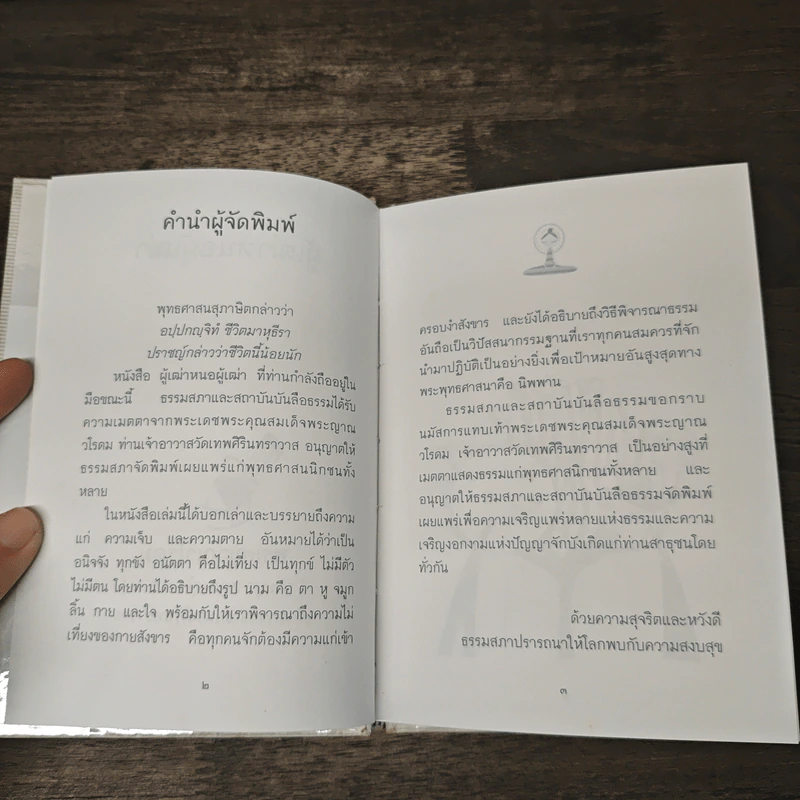 คำนำผู้จัดพิมพ์
พุทธศาสนสุภาษิตกล่าวว่า
อปฺปกญฺจิทํ ชีวิตมาหุธีรา
ปราชญ์กล่าวว่าชีวิตนี้น้อยนัก
หนังสือ ผู้เฒ่าหนอผู้เฒ่า ที่ท่านกำลังถืออยู่ใน
มือขณะนี้ ธรรมสภาและสถาบันบันลือธรรมได้รับ
ความเมตตาจากพระเดชพระคุณสมเด็จพระญาณ
วโรดม ท่านเจ้าอาวาสวัดเทพศิรินทราวาส อนุญาตให้
ธรรมสภาจัดพิมพ์เผยแพร่แก่พุทธศาสนนิกชนทั้ง
หลาย
ในหนังสือเล่มนี้ได้บอกเล่าและบรรยายถึงความ
แก่ ความเจ็บ และความตาย อันหมายได้ว่าเป็น
อนิจจัง ทุกขัง อนัตตา คือไม่เที่ยง เป็นทุกข์ ไม่มีตัว
ไม่มีตน โดยท่านได้อธิบายถึงรูป นาม คือ ตา หู จมูก
ลิ้น กาย และใจ พร้อมกับให้เราพิจารณาถึงความไม่
เที่ยงของกายสังขาร คือทุกคนจักต้องมีความแก่เข้า
๒
ครอบงำสังขาร และยังได้อธิบายถึงวิธีพิจารณาธรรม
อันถือเป็นวิปัสสนากรรมฐานที่เราทุกคนสมควรที่จัก
นำมาปฏิบัติเป็นอย่างยิ่งเพื่อเป้าหมายอันสูงสุดทาง
พระพุทธศาสนาคือ นิพพาน
ธรรมสภาและสถาบันบันลือธรรมขอกราบ
นมัสการแทบเท้าพระเดชพระคุณสมเด็จพระญาณ
วโรดม เจ้าอาวาสวัดเทพศิรินทราวาส เป็นอย่างสูงที่
เมตตาแสดงธรรมแก่พุทธศาสนิกชนทั้งหลาย และ
อนุญาตให้ธรรมสภาและสถาบันบันลือธรรมจัดพิมพ์
เผยแพร่เพื่อความเจริญแพร่หลายแห่งธรรมและความ
เจริญงอกงามแห่งปัญญาจักบังเกิดแก่ท่านสาธุชนโดย
ทั่วกัน
ด้วยความสุจริตและหวังดี
ธรรมสภาปรารถนาให้โลกพบกับความสงบสุข
๓